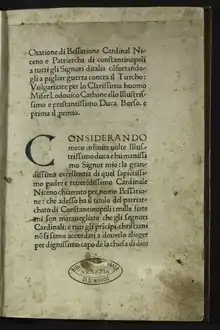 Oratione di Bessarione Cardinal Ni
ceno e Patriarcha di constantinopoli
a tutti gli Signori ditalia cōfortando
gli a pigliar guerra contra il Turcho:
Vulgarizate per lo Clarissimo huomo
Miser Lodouico Carbone allo Illustris
simo e prestantissimo Duca Borso. e
prima il pemio.
CONSIDERANDO
meco infinite uolte Illus
trissimo duca e humanissi
mo Signor mio: la gran
dissima excellentia di quel sapiētissi
mo padre e reuerēdissimo Cardinale
Niceno chiamato per nome Bessario
ne: che adesso ha il titolo del patriar
chato di Constantinopoli: mille fiate
mi son marauegliato che gli segnori
Cardinali: e tuti gli pricipi christiani
nō si siano accordati a douerlo elleger
per dignissimo capo de la chiesa di dio:
VENEZIA